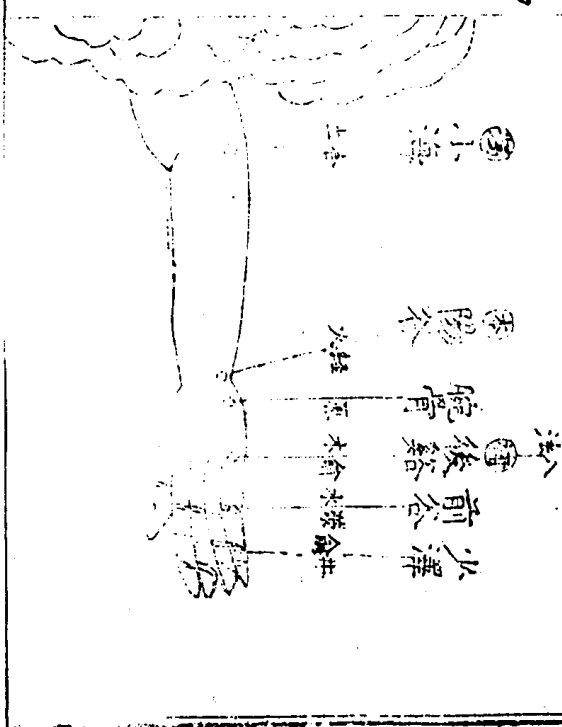 小海
土合
陽谷
火經
腕骨
原
後谿
木俞
前谷
水滎
少澤
金井